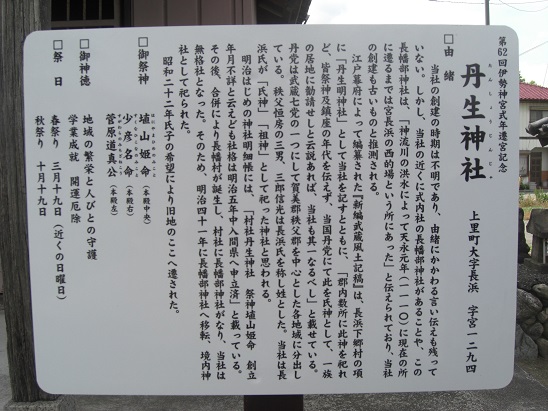 第62回伊勢神宮式年遷宮記念
丹生神社
上里町大字長浜 字宮一二九四
□由緒
当社の創建の時期は不明であり、由緒にかかわる言い伝えも残って
いない。しかし、当社の近くに式内社の長幡部神社があることや、この
長幡部神社は、「神流川の洪水によって天永元年(一一一〇)に現在の所
に遷るまでは宮長浜の西的場という所にあった」と伝えられており、当社
の創建も古いものと推測される。
江戸幕府によって編纂された『新編武蔵風土記稿』は、長浜下郷村の項
に「丹生明神社」として当社を記すとともに、「郡内数所に此神を祀れ
ど、皆祭神及鎮座の年代を伝えず、当国丹党にて此を氏神として、一族
の居地に勧請せしと云説あれば、当社も其一なるべし」と載せている。
丹党は武蔵七党の一つにして賀美郡秩父郡を中心とした各地域に分出し
ている。秩父恒房の三男、三郎信光は長浜氏を称し姓とした。当社は長
浜氏が「氏神」「祖神」として祀った神社と思われる。
明治はじめの神社明細帳には、「村社丹生神社 祭神埴山姫命 創立
年月不詳と云えども社格は明治五年中入間県へ申立済」と載っている。
その後、合併により長幡村が誕生し、村社に長幡部神社がなり、当社は
無格社となった。そのため、明治四十一年に長幡部神社へ移転、境内神
社として祀られた。
昭和二十二年氏子の希望により旧地のここへ遷された。
□御祭神
埴山姫命(本殿中央)
少彦名命(本殿右)
菅原道真公(本殿左)
□御神徳
地域の繁栄と人びとの守護
学業成就 開運厄除
□祭日
春祭り 三月十九日(近くの日曜日)
秋祭り 十月十九日